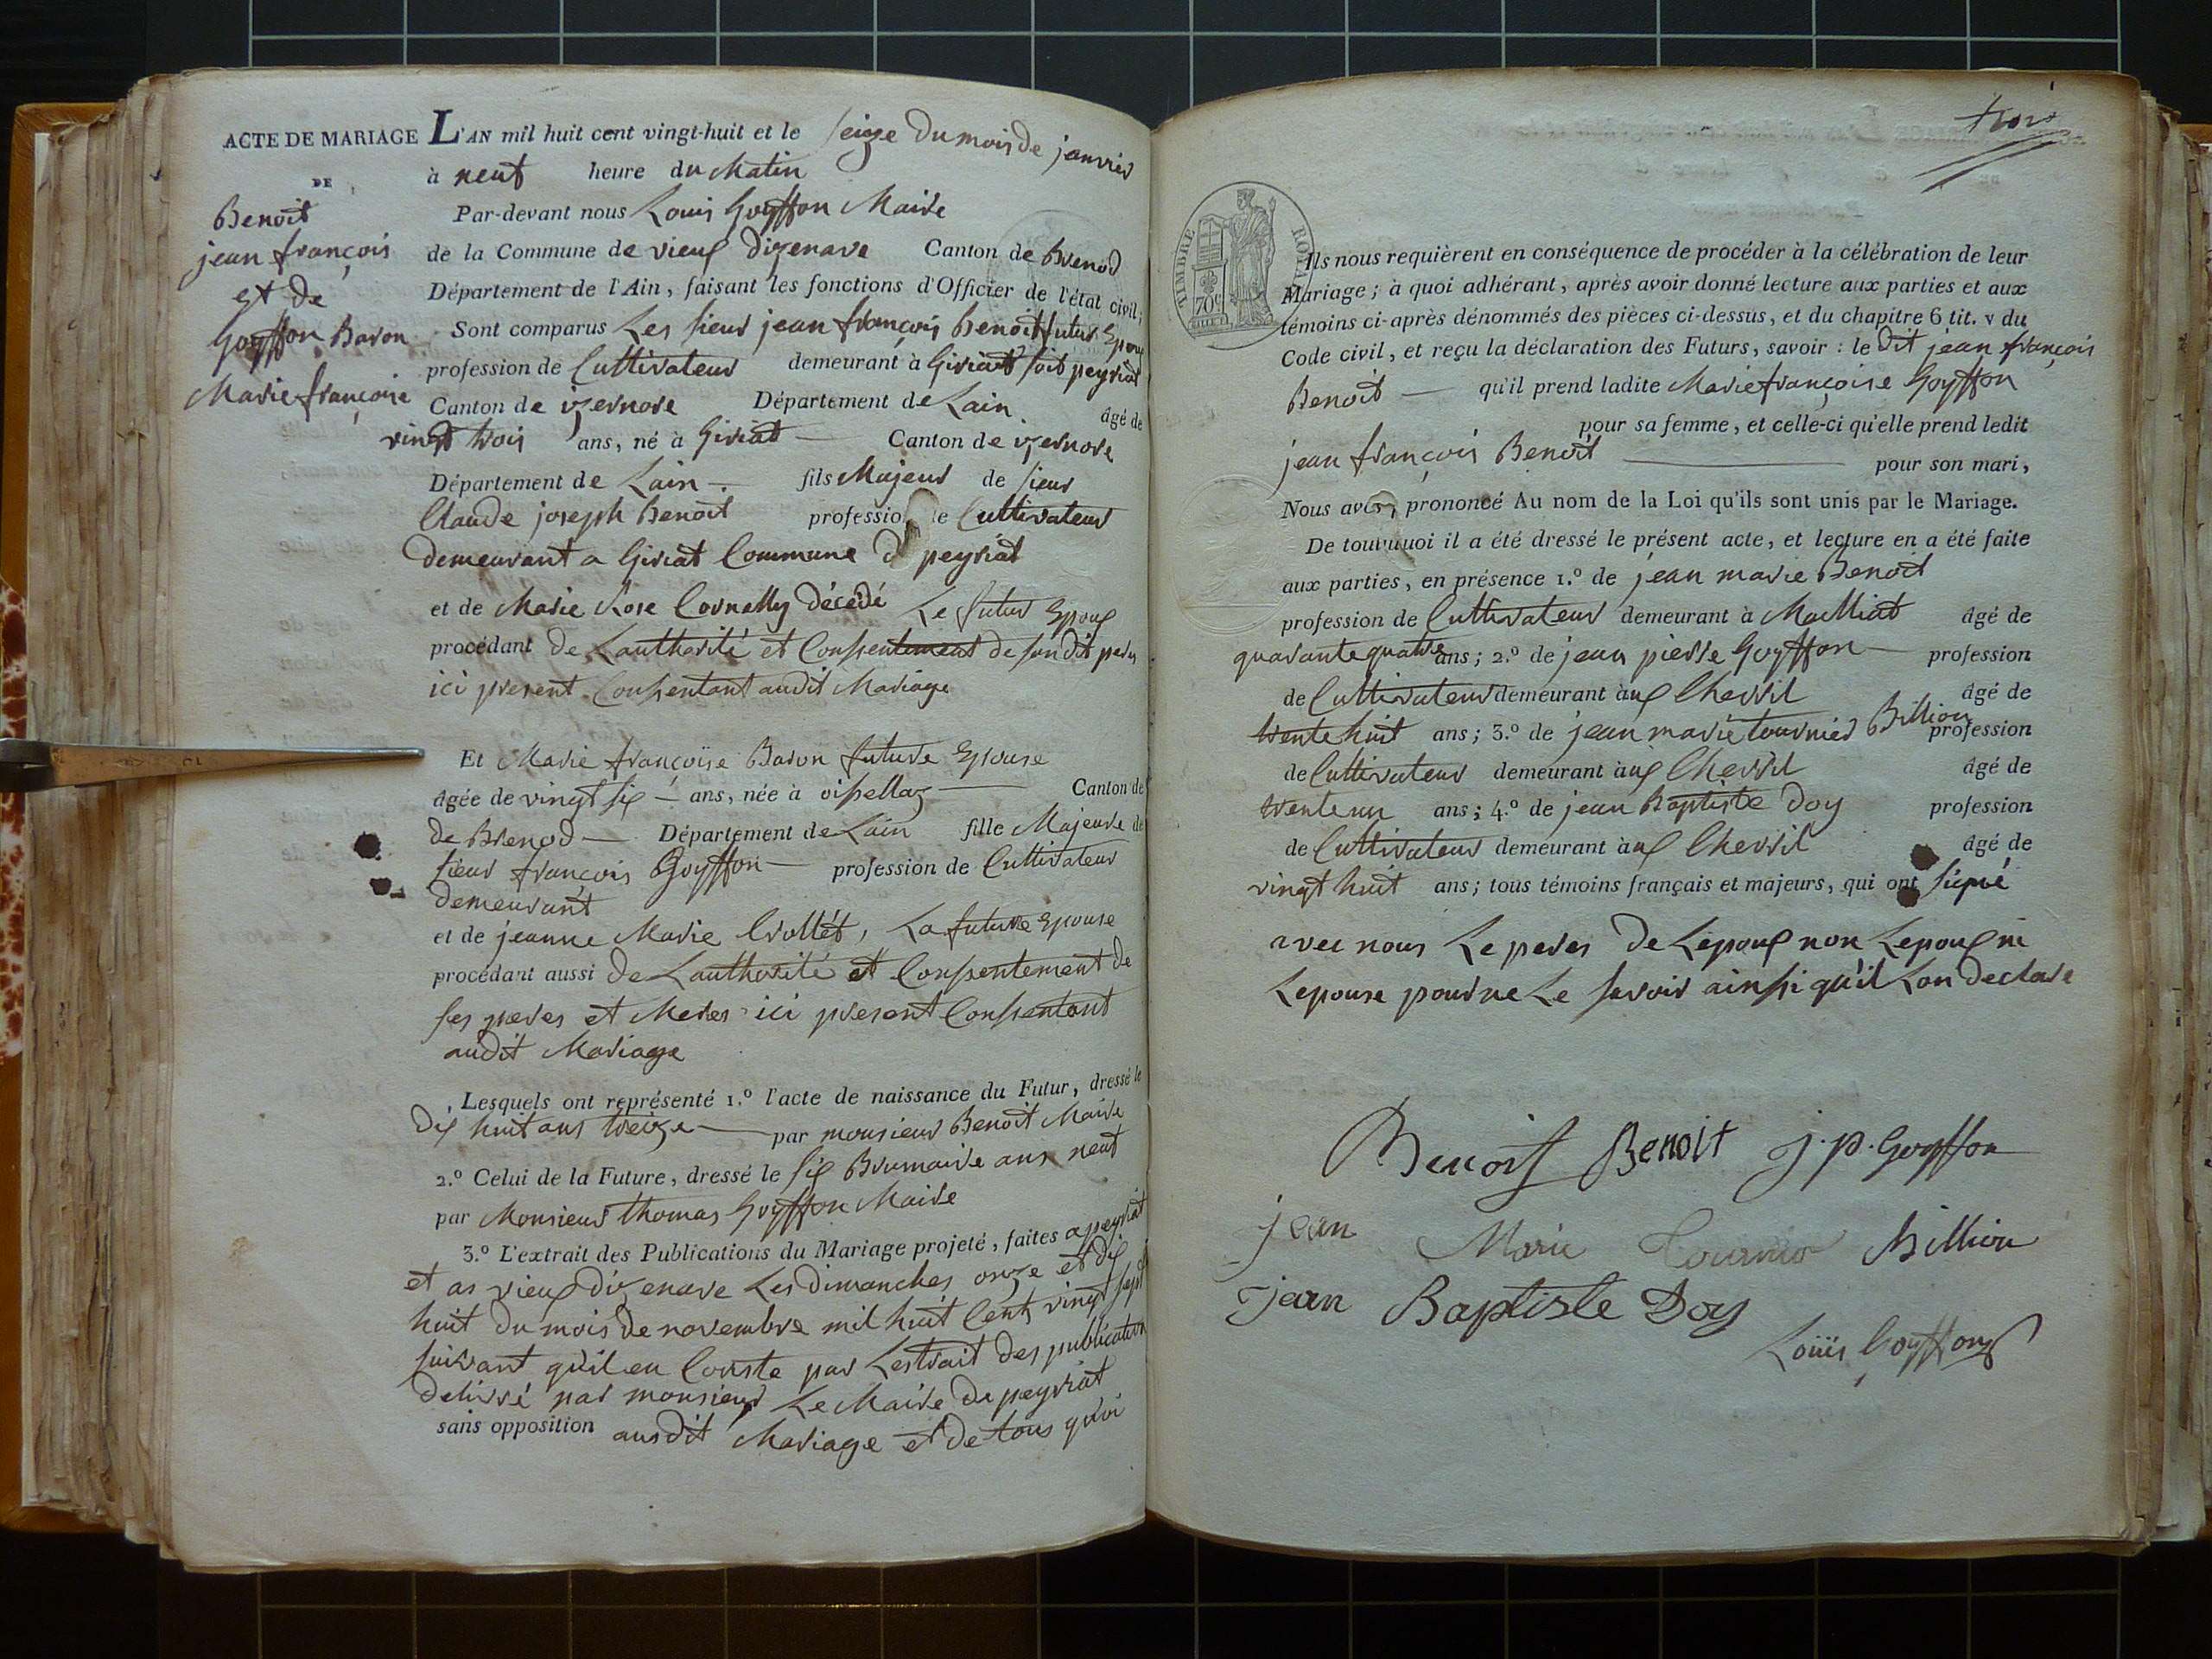 ACTE DE MARIAGE
DE
Benoit
jean françois
et de
Goyffon Baron
Marie françoise
L'AN mil huit cent vingt-huit et le seize du mois de janvier
à neuf heure du Matin
Par-devant nous Louis Goyffon Maire
de la Commune de vieux dizenave Canton de Brenod
Département de l'Ain, faisant les fonctions d'Officier de l'état civil,
Sont comparus Les sieur jean françois Benoit futur Epoux
profession de Cultivateur demeurant à Giriat soit peyriat
Canton de izernore Département de Lain âgé de
vingt trois ans, né à Giriat Canton de izernore
Département de Lain fils Majeur de sieur
Claude joseph Benoit profession de Cultivateur
demeurant a Giriat Commune de peyriat
et de Marie Rose Cornelly décédé Le futur Epoux
procédant de Lauthorité et Consentement de sondit perer
ici present Consentant audit Mariage
Et Marie françoise Baron future Epouse
âgée de vingt six ans, née à oisellaz Canton de
de Brenod Département de Lain fille Majeure de
sieur françois Goyffon profession de Cultivateur
demeurant
et de jeanne Marie Crollét, La future Epouse
procédant aussi de Lauthorité et Consentement de
ses peres et Meres ici present Consentant
audit Mariage
Lesquels ont représenté 1.º l'acte de naissance du Futur, dressé le
dix huit ans treize par monsieur Benoit Maire
2.º Celui de la Future, dressé le six Brumaire ans neuf
par Monsieur thomas Goyffon Maire
3.º L'extrait des Publications du Mariage projeté, faites a peyriat
et as vieux dizenave Les dimanches onze et dix
huit du mois de novembre mil huit Cent vingt sept
suivant quil en Conste par Lestrait des publication
delivré par monsieur Le Maire de peyriat
sans opposition ausdit Mariage et de tous quoi
trois
TIMBRE ROYAL
70c
Ils nous requièrent en conséquence de procéder à la célébration de leur
Mariage; à quoi adhérant, après avoir donné lecture aux parties et aux
témoins ci-après dénommés des pièces ci-dessus, et du chapitre 6 tit. v du
Code civil, et reçu la déclaration des Futurs, savoir : le dit jean françois
Benoit qu'il prend ladite Marie françoise Goyffon
pour sa femme, et celle-ci qu'elle prend ledit
jean françois Benoit pour son mari,
Nous avons prononcé Au nom de la Loi qu'ils sont unis par le Mariage.
De tout quoi il a été dressé le présent acte, et lecture en a été faite
aux parties, en présence 1.º de jean marie Benoit
profession de Cultivateur demeurant à Mailliat âgé de
quarante quatre ans; 2.º de jean pierre Goyffon profession
de Cultivateur demeurant à aux Chevril âgé de
trente huit ans; 3.º de jean marie tournier Billion profession
de Cultivateur demeurant à aux Chevril âgé de
trente un ans; 4.º de jean Baptiste Doy profession
de Cultivateur demeurant à aux Chevril âgé de
vingt huit ans; tous témoins français et majeurs, qui ont signé
avec nous Le perer de Lépoux non Lepoux ni
Lepouse pour ne Le savoir ainsi quil Lon declare
Benoit Benoit j. p. Goyffon
jean Marie Tournier Billion
jean Baptiste Doy
Loüis Goyffon